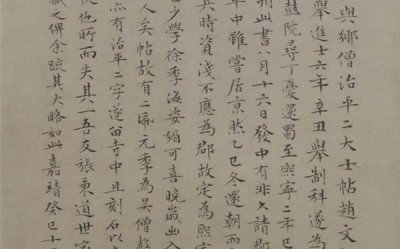 與鄉僧治平二大士帖趙文
舉進士六年辛丑舉制科遂為
鼓院尋丁憂還蜀至熙寧二年
州此書八月十六日發中有非久請郡
年中雖嘗居京然乙巳冬還朝而
其時資淺不應為郡故定為熙
少學徐季海姿媚可喜晚歲出入
人矣帖故有二元季為吳僧
亦有治平二字遂留寺中且刻石以
後他所而失其一吾友張秉道世
藏之俾余疏其大略如此嘉靖癸巳十